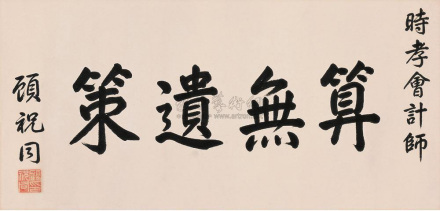 時孝會計師
算無遺策
顧祝同